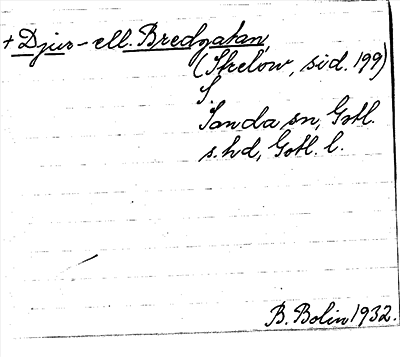 + Djur- ell. Bredgatan,
(Skelow, sid. 199)
S
Sanda sn, Gotl.
s. hd, Gotl. l.
B. Bolin 1932.